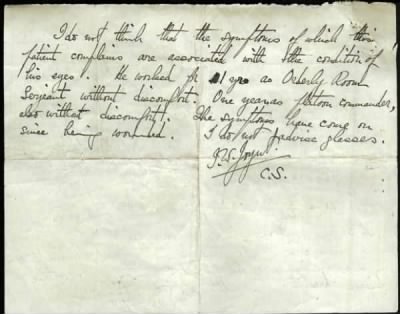 I do not think that the symptoms of which this
patient complains are associated with the condition of
his eyes. He worked for yrs as Orderly Room
Sergeant without discomfort. One year as platoon commander,
also without discomfort. The symptoms have come on
since being wounded. I do not advise glasses.
C.S.